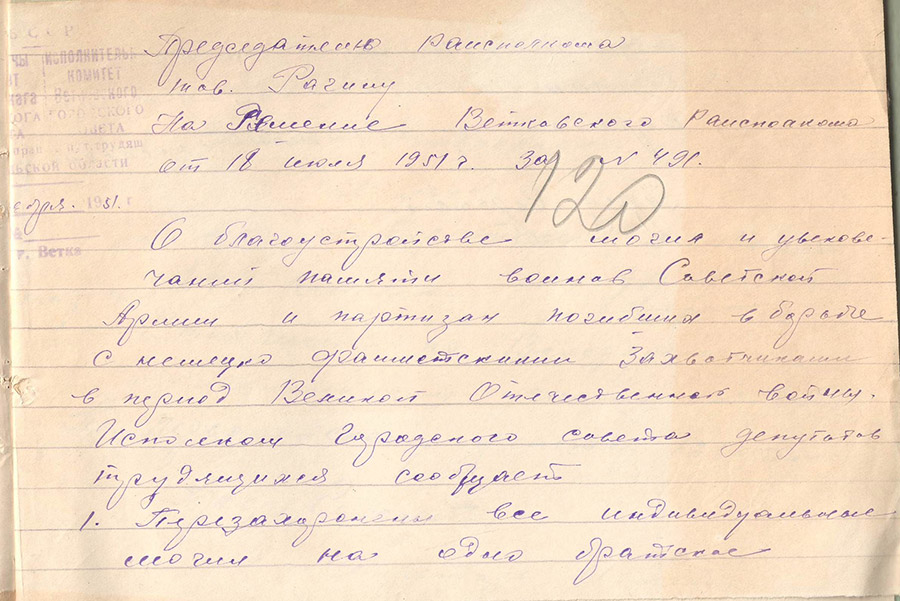 БССР
ИСПОЛНИТЕЛЬ
КОМИТЕТ
Ветковского
ГОРОДСКОГО
СОВЕТА
деп. трудящ
ской области
1951 г
г. Ветка
Председателю Райсполкома
тов. Рагину
На Решение Ветковского Райсполкома
от 18 июля 1951 г. за № 491.
120
О благоустройстве могил и увекове-
чании памяти воинов Советской
Армии и партизан погибших в борьбе
с немецко фашистскими захватчиками
в период Великой Отечественной войны.
Исполком Городского совета депутатов
трудящихся сообщает
1. Перезахоронены все индивидуальные
могил на одно братское